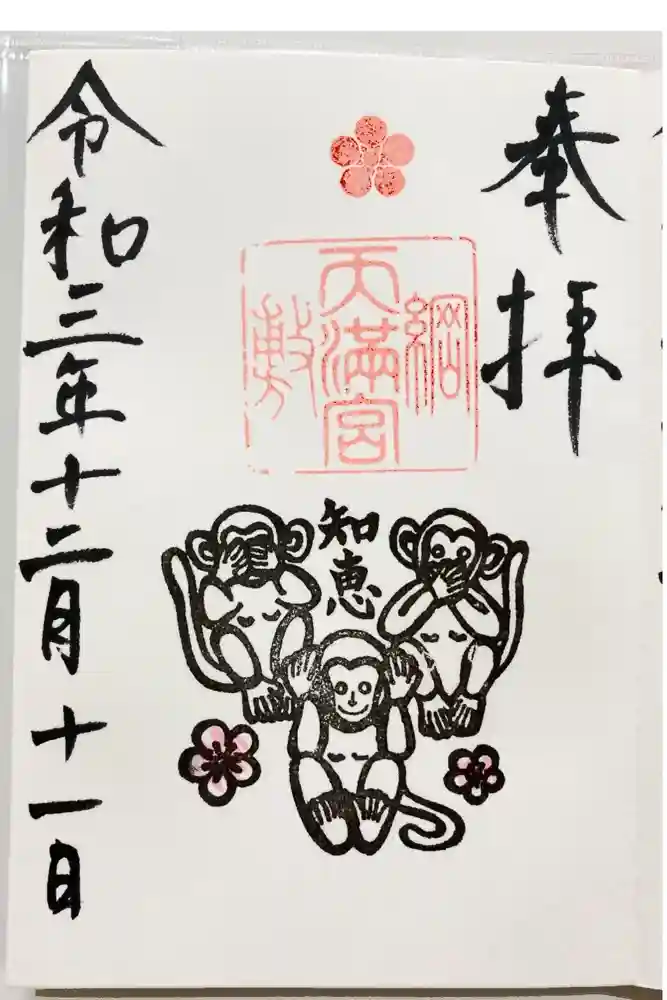 奉拝
綱
天満宮
敷
知恵
令和三年十二月十一日